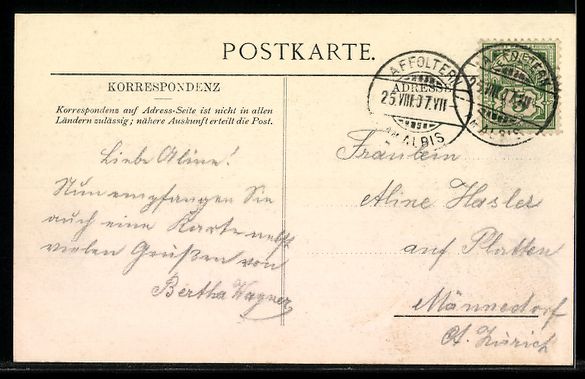 POSTKARTE.
KORRESPONDENZ
Korrespondenz auf Adress-Seite ist nicht in allen
Ländern zulässig; nähere Auskunft erteilt die Post.
ADRESSE
AFFOLTERN
25.VIII.07.VII
A/ALBIS
AFFOLTERN
ALBIS
Liebe Aline!
Nun empfangen Sie
auch eine Karte nebst
vielen Grüßen von
Bertha Wagner
Fräulein
Aline Hasler
auf Platten
Männedorf
Ct. Zürich